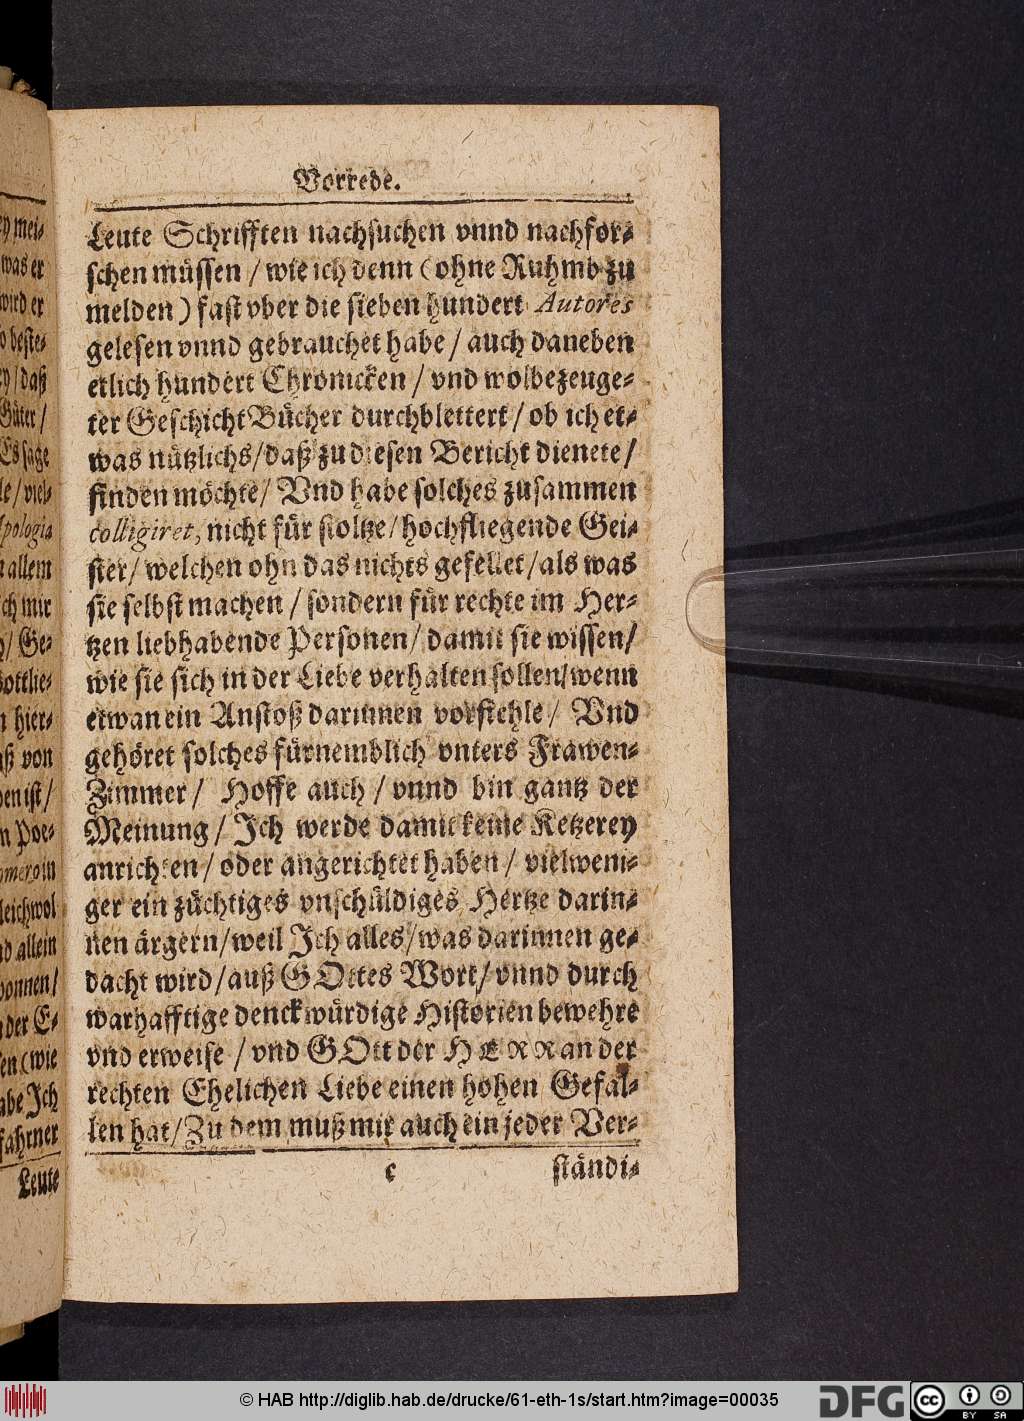 Vorrede.
Leute Schrifften nachsuchen vnnd nachfor-
schen müssen / wie ich denn (ohne Ruhmb zu
melden) fast vber die sieben hundert Autores
gelesen vnnd gebrauchet habe / auch daneben
etlich hundert Chronicken / vnd wolbezeuge-
ter Geschicht Bücher durchblettert / ob ich et-
was nützlichs / daß zu diesen Bericht dienete /
finden möchte / Vnd habe solches zusammen
colligiret, nicht für stoltze / hochfliegende Gei-
ster / welchen ohn das nichts gefellet / als was
sie selbst machen / sondern für rechte im Her-
tzen liebhabende Personen / damit sie wissen /
wie sie sich in der Liebe verhalten sollen / wenn
etwan ein Anstoß darinnen vorfiehle / Vnd
gehöret solches fürnemblich vnters Frawen-
Zimmer / Hoffe auch / vnnd bin gantz der
Meinung / Ich werde damit keine Ketzerey
anrichten / oder angerichtet haben / vielweni-
ger ein züchtiges vnschüldiges Hertze darin-
nen ärgern / weil Ich alles / was darinnen ge-
dacht wird / auß GOttes Wort / vnnd durch
warhafftige denckwürdige Historien bewehre
vnd erweise / vnd GOtt der HERR an der
rechten Ehelichen Liebe einen hohen Gefal-
len hat / Zu dem muß mir auch ein jeder Ver-
c
ständi-
mei-
was er
wird er
beste-
/ daß
Güter /
Es sage
/ viel-
allem
mir
/ Ge-
Gottlie-
hier-
von
ist /
Poe-
in
allein
der E-
(wie
Ich
Leute
© HAB http://diglib.hab.de/drucke/61-eth-1s/start.htm?image=00035
DFG
cc
BY SA